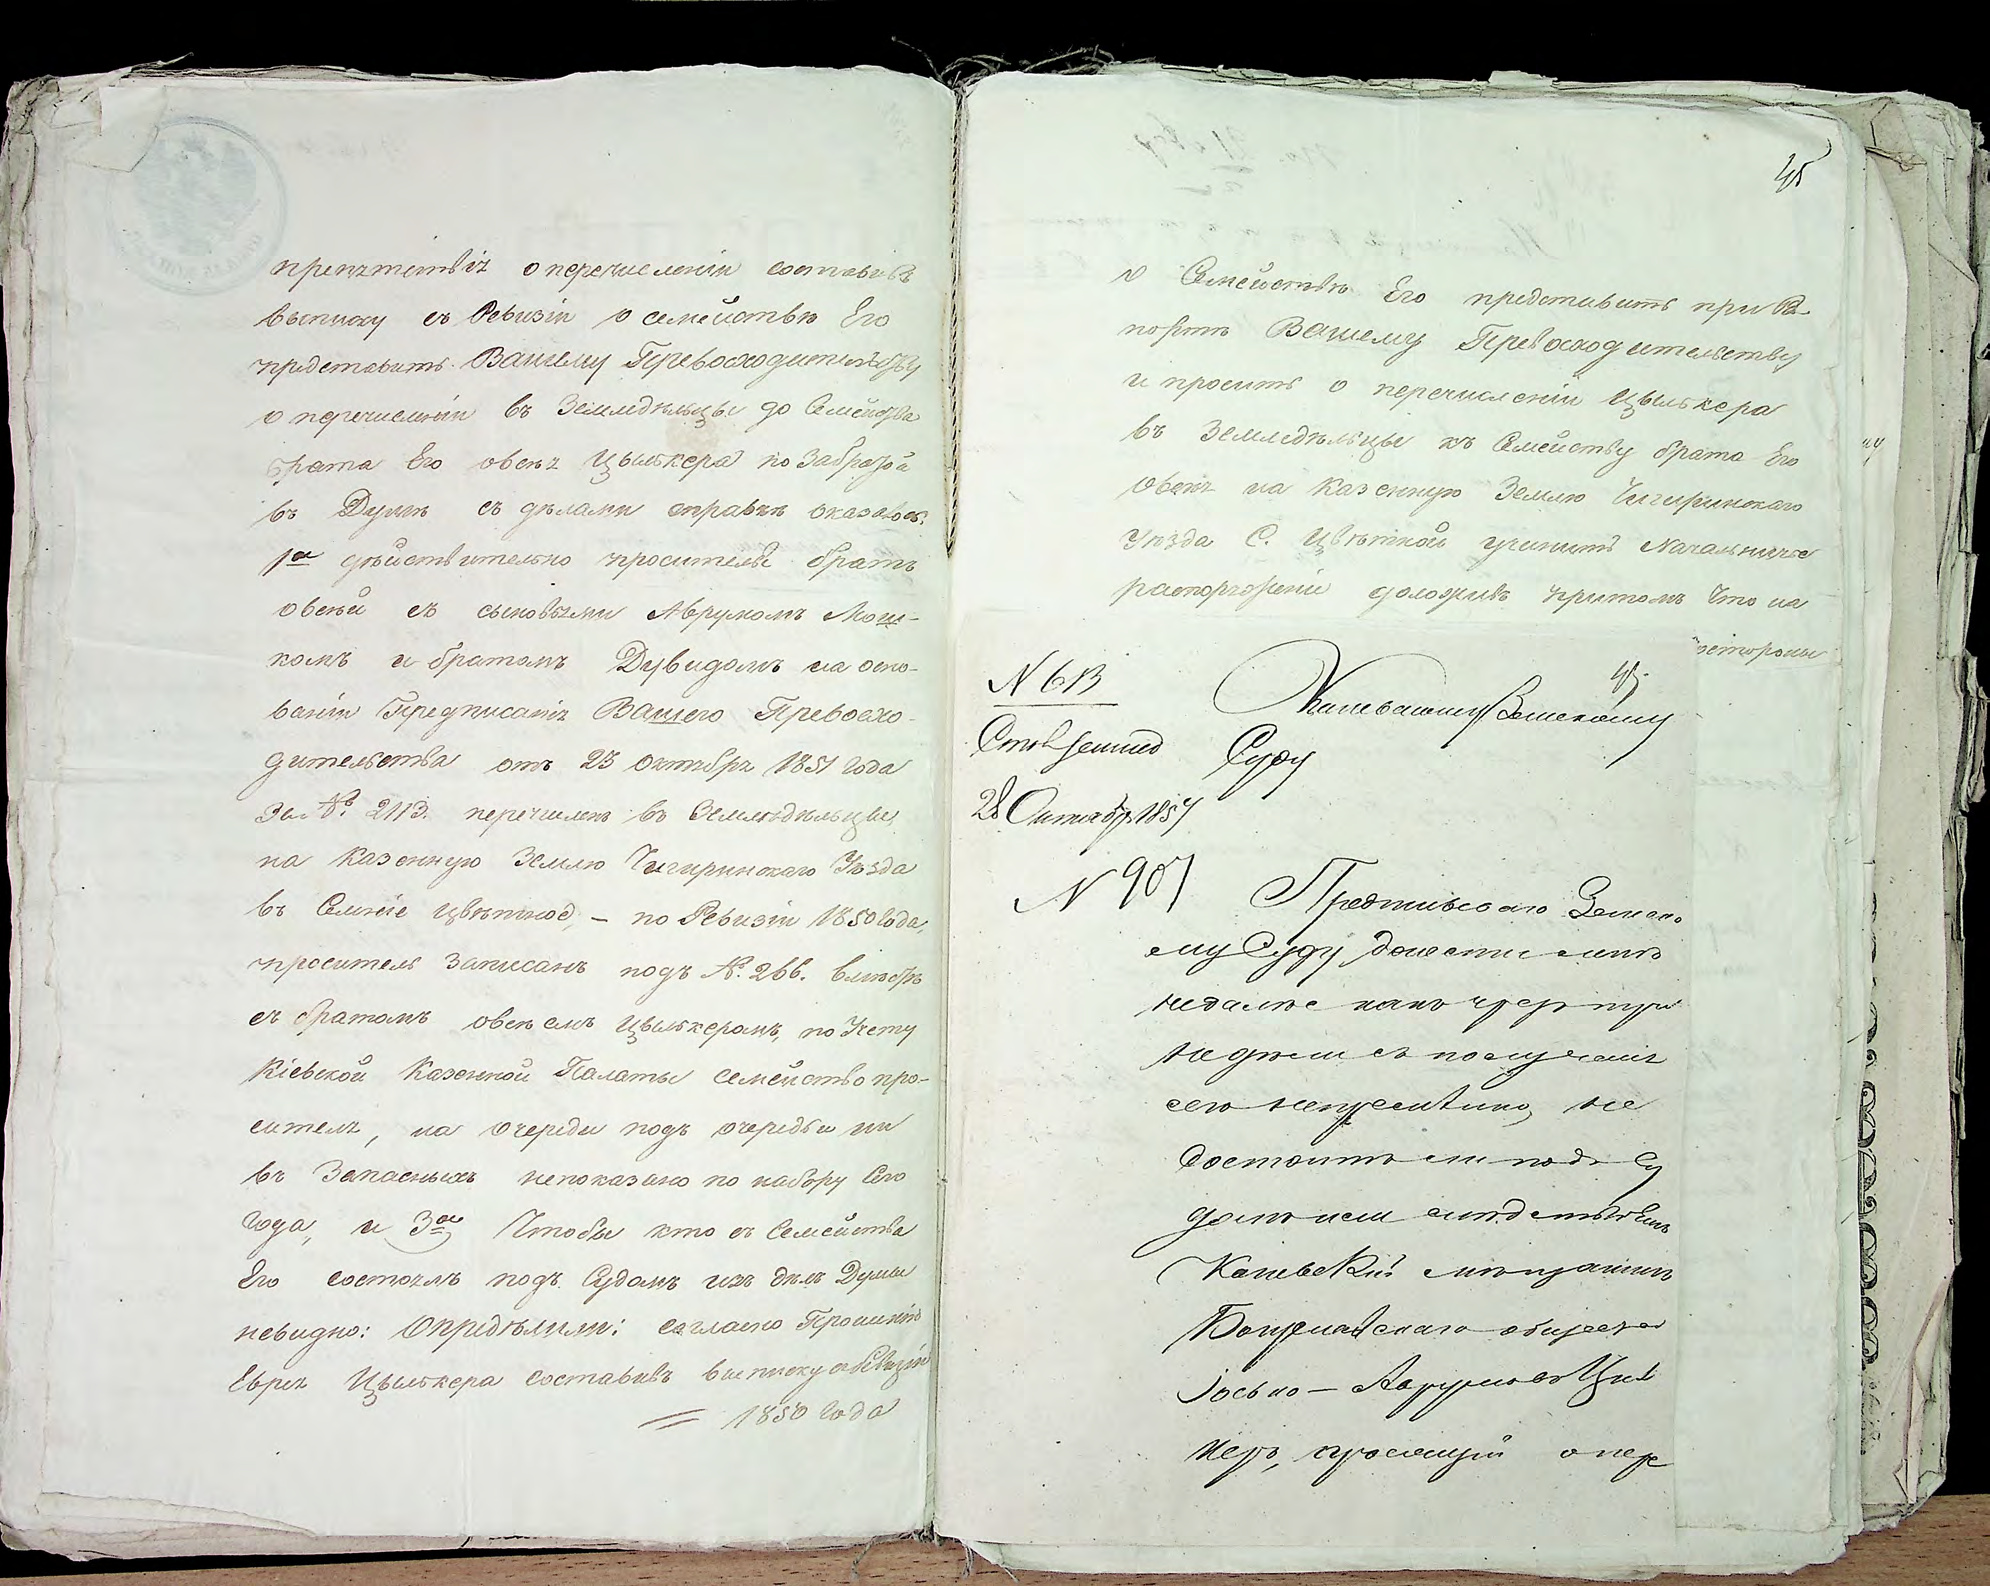 препятствія о перечисленіи составивъ
выписку съ Ревизіи о семействѣ Его
представить Вашему Превосходительству
о перечисленіи въ Земледѣльцы до Семейства
брата Его Овсея Цылькера по забратой
въ Думѣ съ дѣлами справкѣ оказалось:
1ое дѣйствительно просителя братъ
Овсей съ сыновьями Аврумомъ Мош-
комъ и братомъ Дувидомъ на осно-
ваніи Предписанія Вашего Превосхо-
дительства отъ 23 Октября 1851 года
за № 2113. перечисленъ въ Земледѣльцы
на Казенную Землю Чигиринскаго Уѣзда
въ Селеніе Цвѣтное, — по Ревизіи 1850 года,
проситель записанъ подъ № 266. вмѣстѣ
съ братомъ Овсеемъ Цылькеромъ, по Учету
Кіевской Казенной Палаты семейство про-
сителя, на очереди подъ очередью ни
въ Запасныхъ непоказано по набору Сего
года, и 3ое Чтобы кто съ Семейства
Его состоялъ подъ Судомъ изъ дѣлъ Думы
невидно: Опредѣлили: согласно Прошенію
Еврея Цылькера составивъ выписку съ Ревизіи
1850 года
45
о Семействѣ Его представить при Ра-
портѣ Вашему Превосходительству
и просить о перечисленіи Цылькера
въ Земледѣльцы къ Семейству брата Его
Овсея на Казенную Землю Чигиринскаго
Уѣзда С. Цвѣтной учинить Начальничье
распоряженіе доложивъ притомъ Что на
стороны
№ 613
Каневскому Земскому
Суду
28 Октября 1857
№ 907
Предписываю Земско
му Суду донести мнѣ
недалѣе какъ чрезъ три
недѣли съ полученія
сего непремѣнно, не
состоитъ ли подъ Су
домъ или слѣдствіемъ
Каневскій мѣщанинъ
Богуславскаго общества
Іосько — Аврумовъ Циль
керъ, просящій о пере